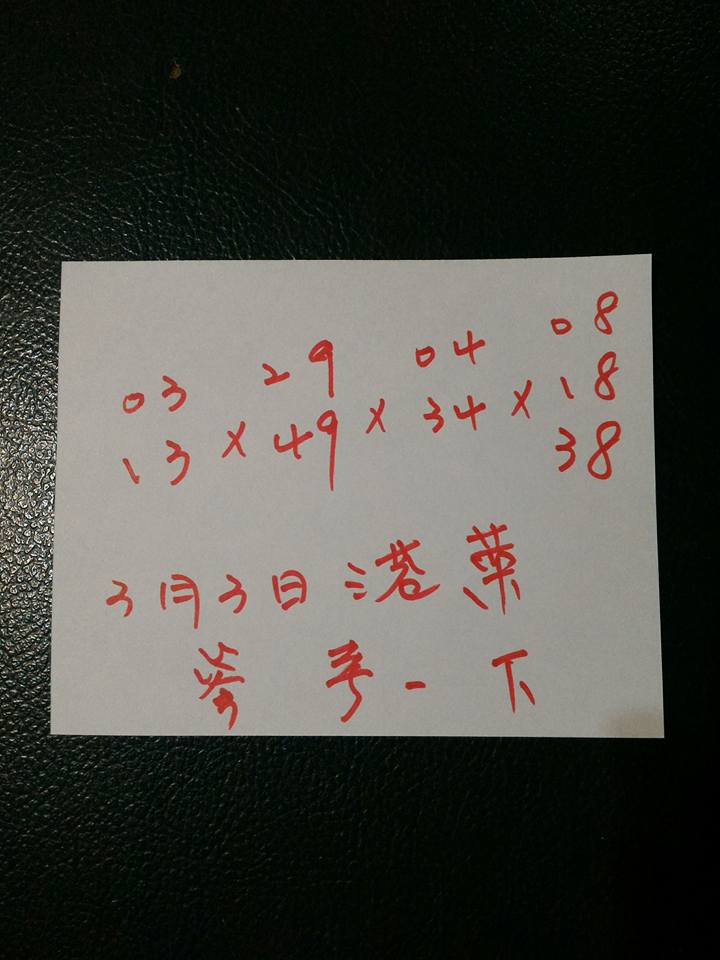 03 29 04 08
13 × 49 × 34 × 18
38
3月3日港
參考一下